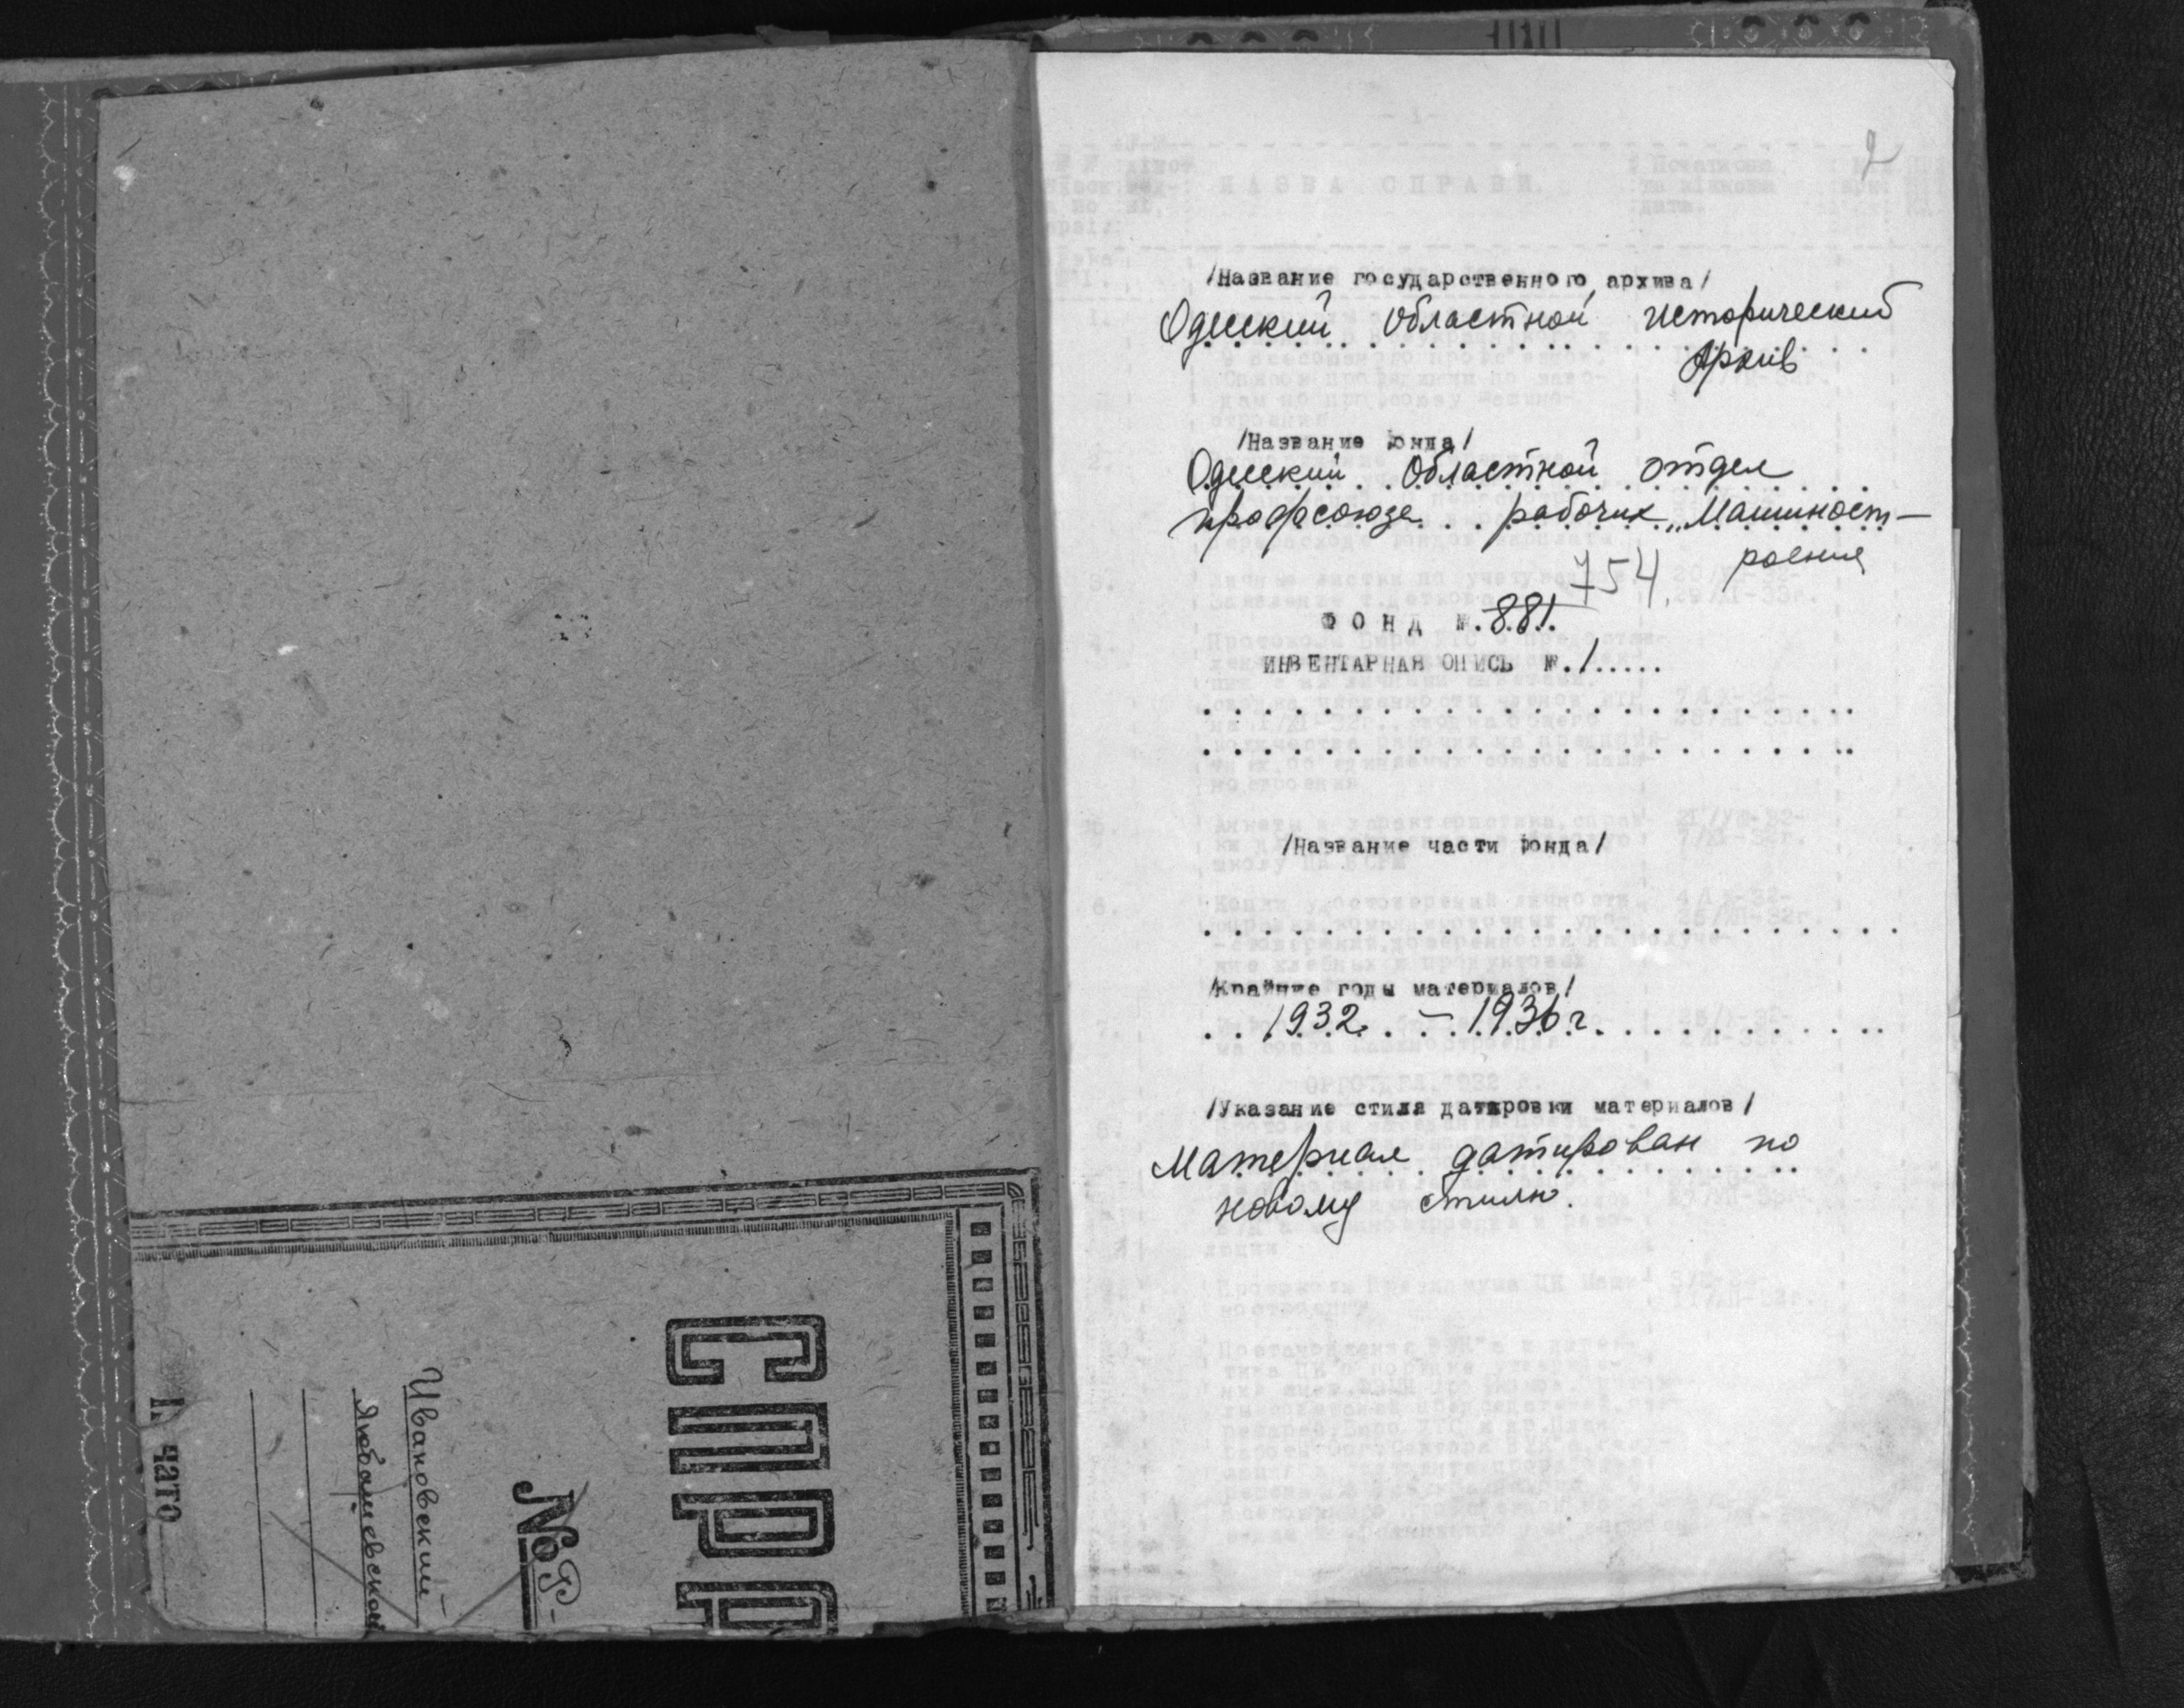 СПРР
№ Р-
Ивановский
Чато
2
/Название государственного архива/
Одесский областной исторический
Архив
/Название фонда/
Одесский областной отдел
профсоюза рабочих „Машиност-
роения
754.
ФОНД №.881.
ИНВЕНТАРНАЯ ОПИСЬ №.1.....
/Название части фонда/
/Крайние годы материалов/
1932 – 1936 г.
/Указание стиля датировки материалов/
Материал датирован по
новому стилю.